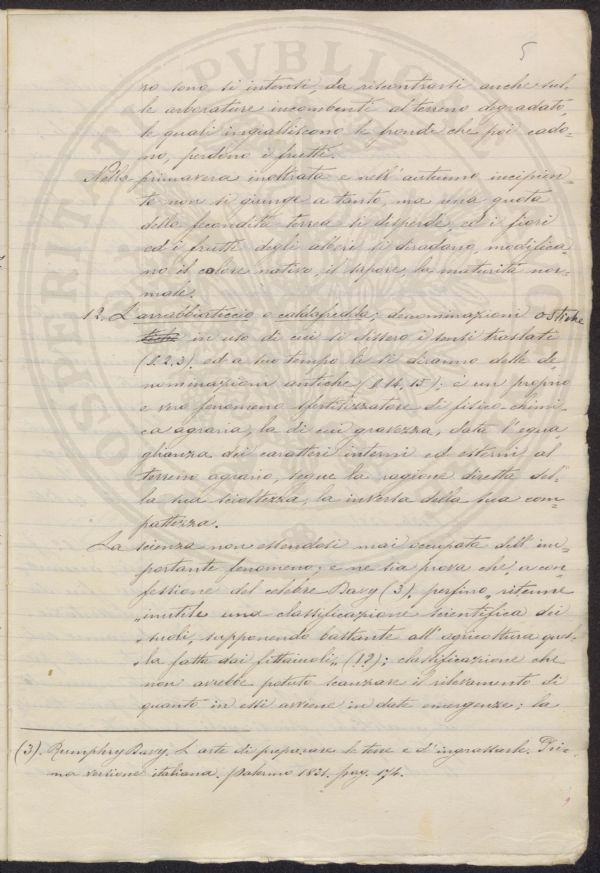 5
no sono sì intensi, da riscontrarsi anche sul-
le arborature incombenti al terreno degradato,
le quali ingialliscono le frondi che poi cado-
no, perdono i frutti.
Nella primavera inoltrata e nell'autunno incipien-
te non si giunge a tanto, ma una quota
della fecondità terrea si disperde, ed i fiori
ed i frutti degli alberi si diradano, modifica-
no il colore nativo, il sapore, la maturità nor-
male.
12. L'arrabbiaticcio o caldafredda; denominazioni ostiche
in uso di cui si dissero i sensi traslati
(§. 2. 3.) ed a suo tempo se ne diranno delle de-
nominazioni antiche (§. 14. 15); è un proprio
e vero fenomeno sfertilizzatore di fisico-chimi-
ca agraria, la di cui gravezza, data l'egua-
glianza dei caratteri interni ed esterni, al
terreno agrario, segue la ragione diretta del-
la sua scioltezza, la inversa della sua com-
pattezza.
La scienza non essendosi mai occupata dell'im-
portante fenomeno; e ne sia prova che, a con-
fessione del celebre Davy (3), perfino "ritenne
"inutile una classificazione scientifica dei
"suoli, supponendo bastante all'agricoltura quel-
"la fatta dai fittaiuoli" (12); classificazione che
non avrebbe potuto scanzare il rilevamento di
quanto in essi avviene in date emergenze; la
(3). Humphry Davy. L'arte di preparare le terre e d'ingrassarle. Pri-
ma versione italiana. Palermo 1821. pag. 174.
PROSPERITATI PVBLICAE